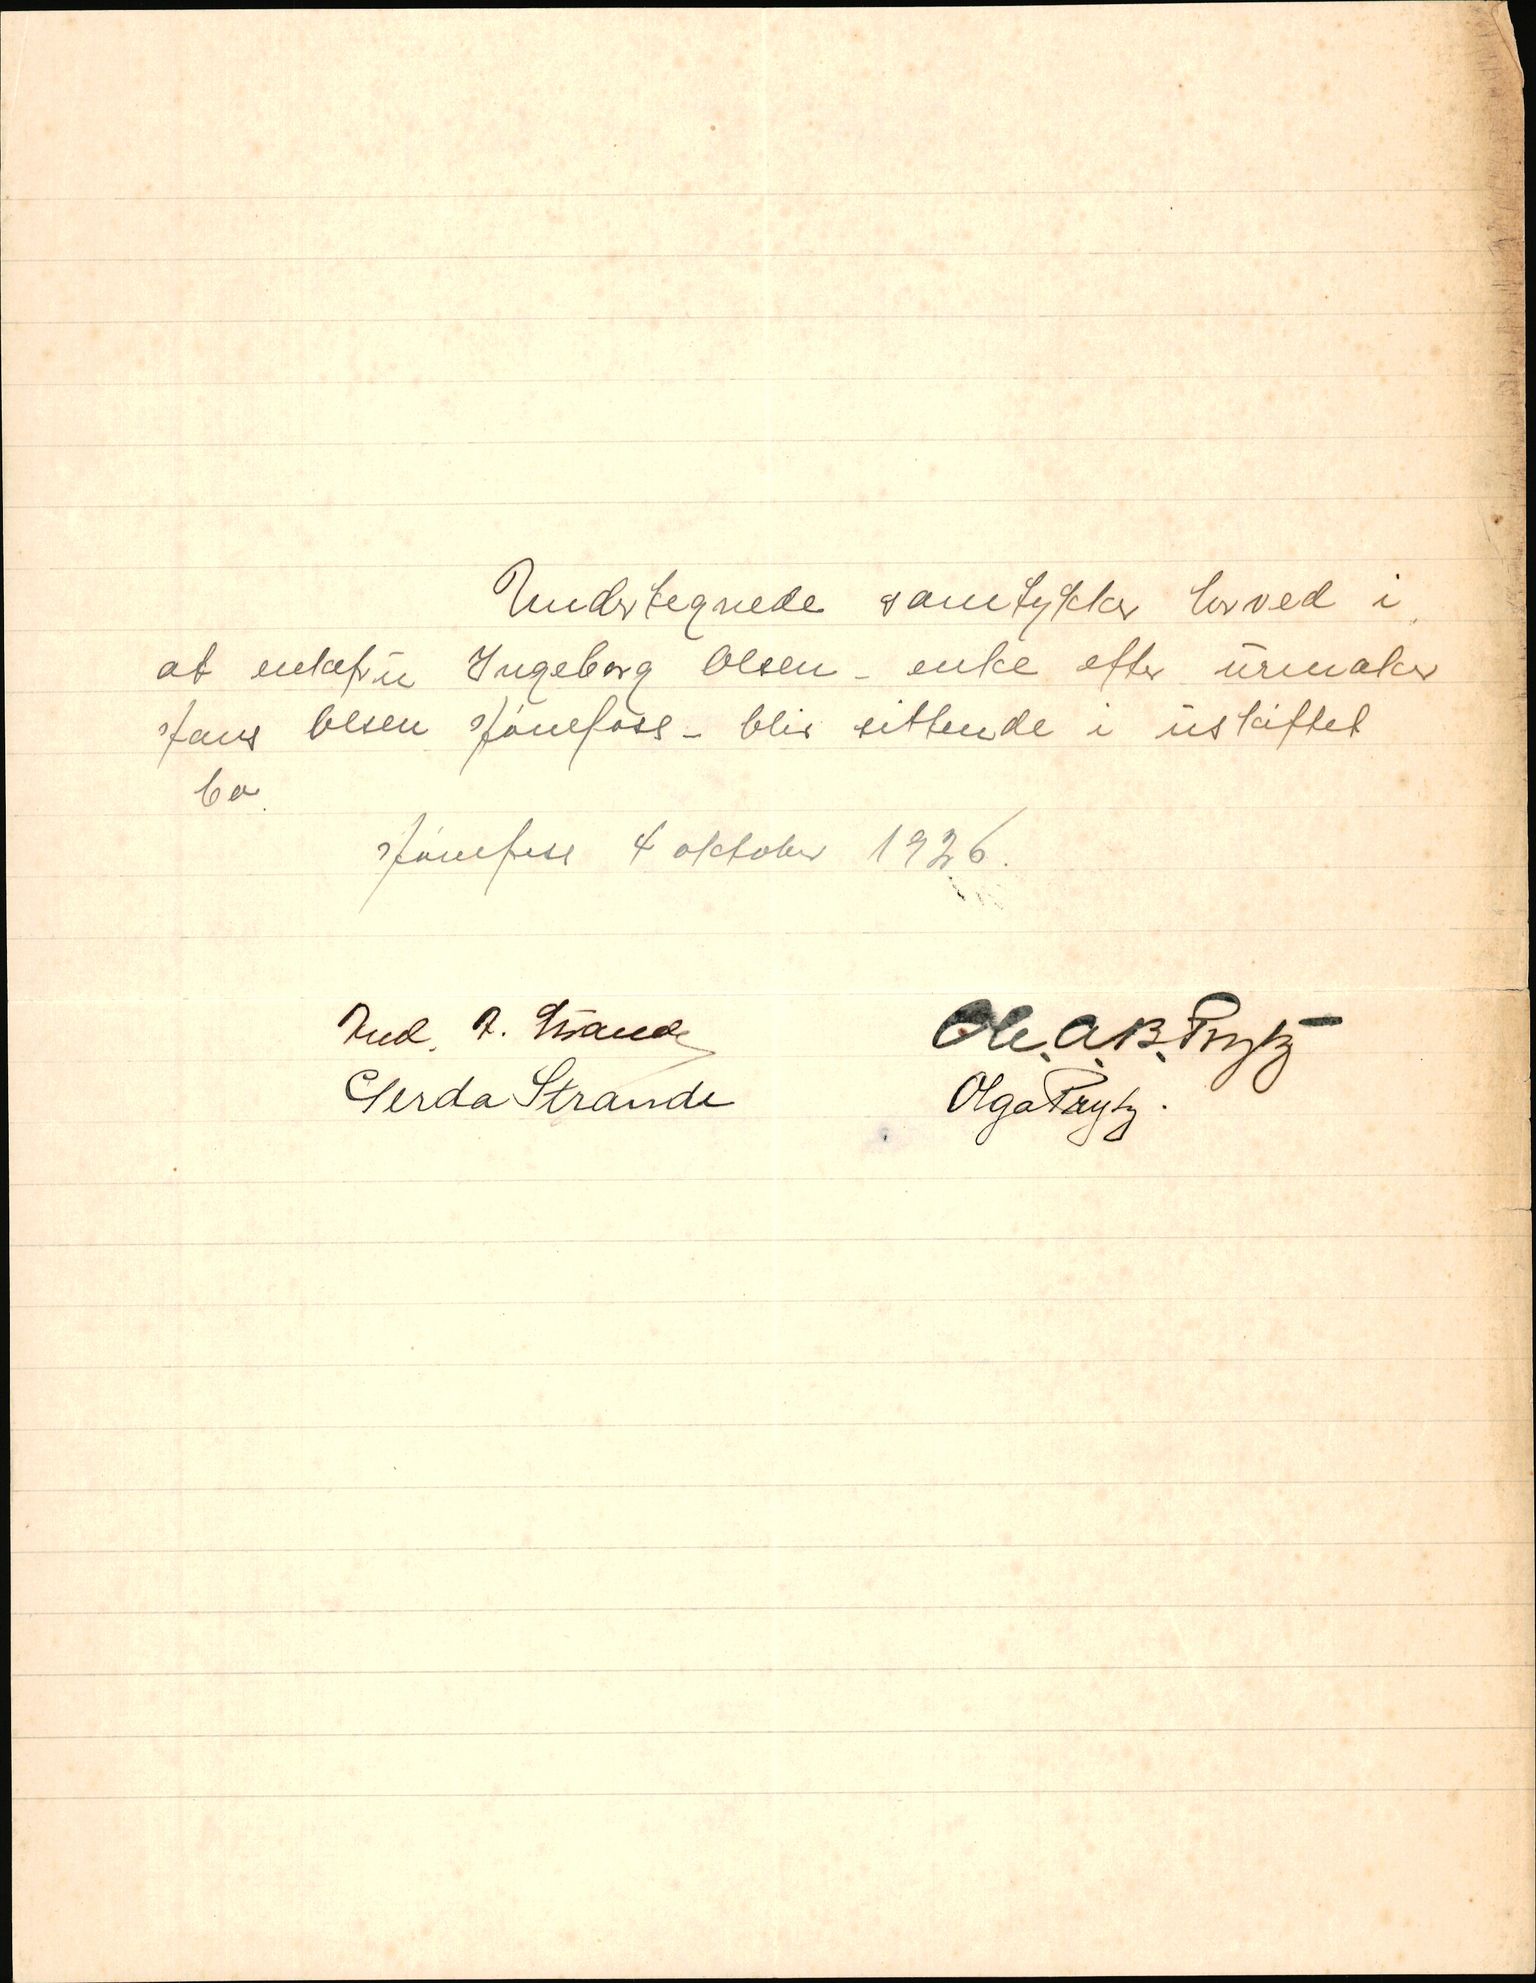 Undertegnede samtykker herved i
at enkefru Ingeborg Olsen - enke efter urmaker
Hans Olsen Hønefoss - blir sittende i uskiftet
bo.
Hønefoss 4 oktober 1926.
Strande Ole. A. B. Prytz
Gerda Strande Olga Prytz.